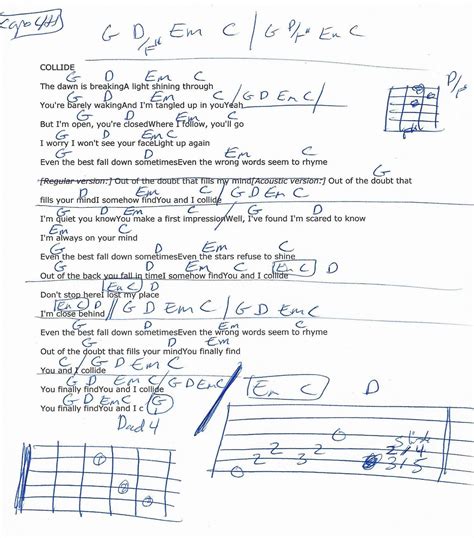 Capo 4th
G D/F# Em C / G D/F# Em C
COLLIDE
G D Em C
The dawn is breakingA light shining through
G D Em C / G D Em C /
You're barely wakingAnd I'm tangled up in youYeah
G D Em C
But I'm open, you're closedWhere I follow, you'll go
G D Em C
I worry I won't see your faceLight up again
G D Em C
Even the best fall down sometimesEven the wrong words seem to rhyme
G
[Regular version:] Out of the doubt that fills my mind[Acoustic version:] Out of the doubt that
D Em C / G D Em C
fills your mindI somehow findYou and I collide
G D Em C
I'm quiet you knowYou make a first impressionWell, I've found I'm scared to know
Em C
I'm always on your mind
G D Em C
Even the best fall down sometimesEven the stars refuse to shine
G D Em C Em C D
Out of the back you fall in timeI somehow findYou and I collide
Em C D
Don't stop hereI lost my place
Em C D // G D Em C / G D Em C
I'm close behind
G D Em C
Even the best fall down sometimesEven the wrong words seem to rhyme
G D Em
Out of the doubt that fills your mindYou finally find
C / G D Em C
You and I collide
G D Em C / G D Em C /
You finally findYou and I collide
G D Em C G
You finally findYou and I c
D/F#
Em C D
1
2
3
0 2 2 3 2 0
2/4
3/5